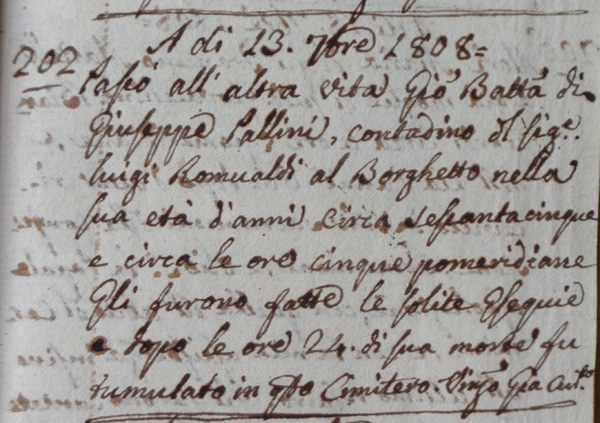 A di 13. 7bre 1808=
202 Passò all' altra vita Gio Batta di
Giuseppe Pallini, contadino dl Sige.
Luigi Romualdi al Borghetto nella
sua età d'anni circa sessantacinque
e circa le ore cinque pomeridiane
Gli furono fatte le solite Esequie
e dopo le ore 24. di sua morte fu
tumulato in qto Cimitero.